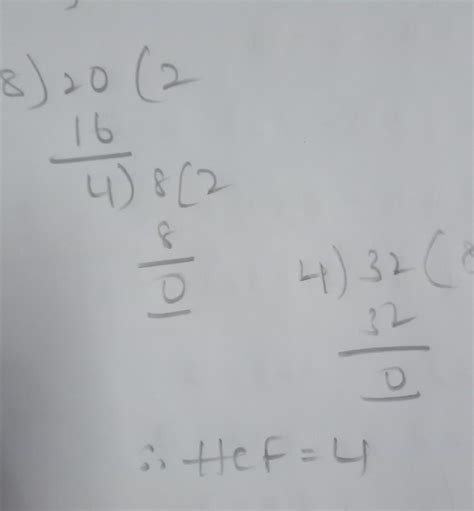 8) 20 (2
16
4) 8 (2
8
0
4) 32 (8
32
0
∴ HCF = 4